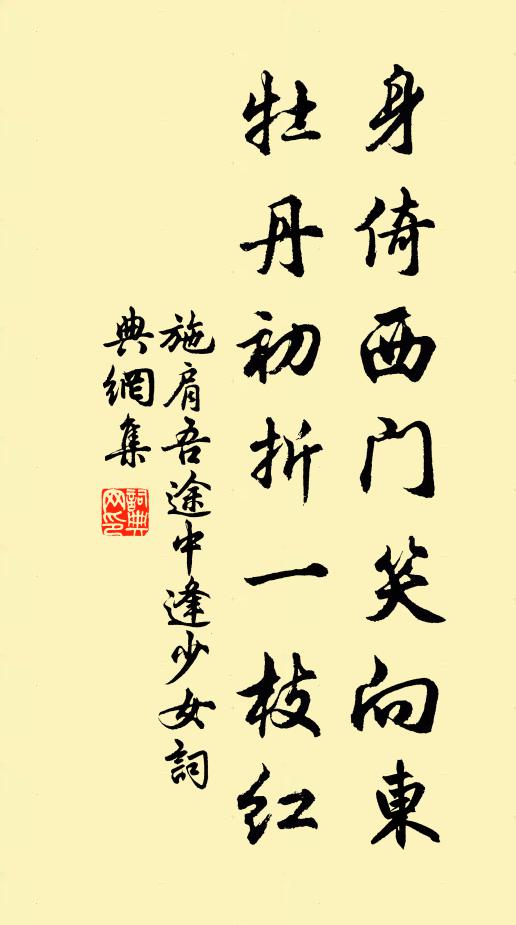 身倚西门笑向東
牡丹初折一枝红
施肩吾途中逢少女詞
典網集
詞典网印